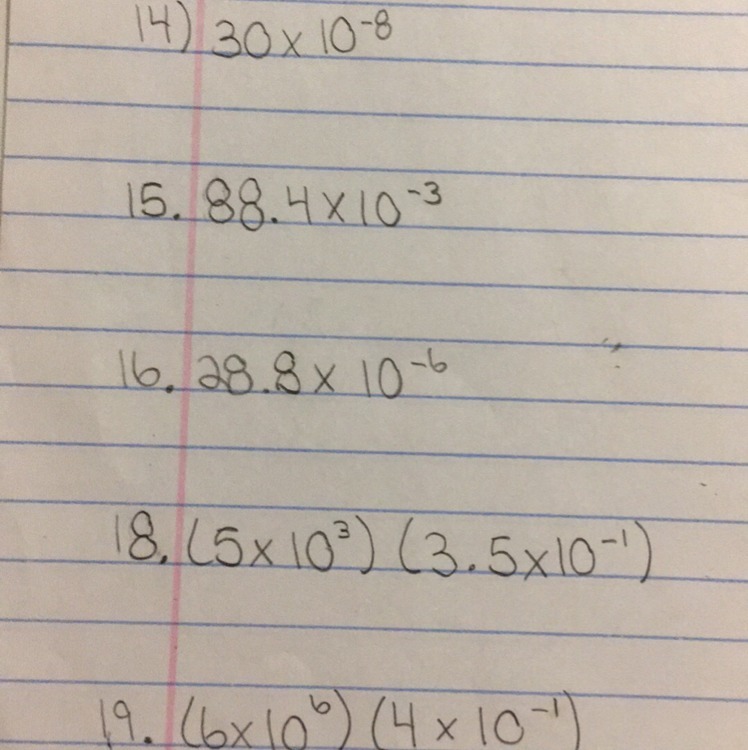 14) 30 x 10⁻⁸
15. 88.4 x 10⁻³
16. 28.8 x 10⁻⁶
18. (5 x 10³) (3.5 x 10⁻¹)
19. (6 x 10⁶) (4 x 10⁻¹)